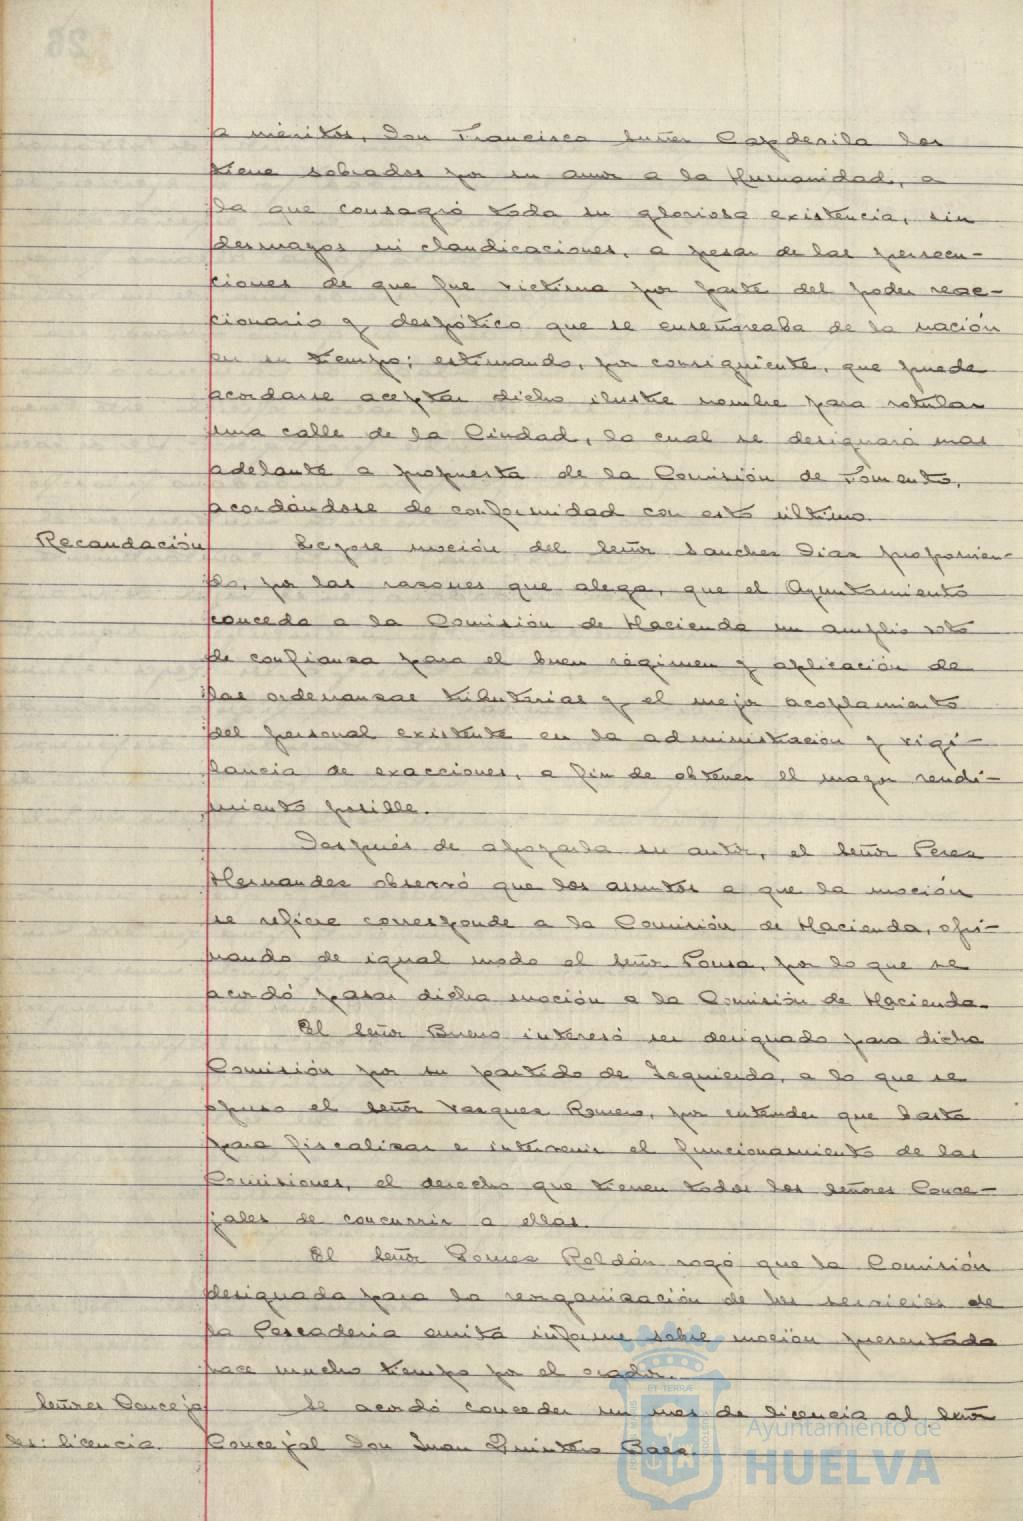 a méritos, Don Francisco Suñer Capdevila los
tiene sobrados por su amor a la Humanidad, a
la que consagró toda su gloriosa existencia, sin
desmayos ni claudicaciones, a pesar de las persecu-
ciones de que fue victima por parte del poder reac-
cionario y despótico que se enseñoreaba de la nación
en su tiempo; estimando, por consiguiente, que puede
acordarse aceptar dicho ilustre nombre para rotular
una calle de la Ciudad, la cual se designará mas
adelante a propuesta de la Comisión de Fomento,
acordándose de conformidad con esto último.
Recaudación
Leyose moción del Señor Sanchez Diaz proponien-
do, por las razones que alega, que el Ayuntamiento
conceda a la Comisión de Hacienda un amplio voto
de confianza para el buen régimen y aplicación de
las ordenanzas tributarias y el mejor acoplamiento
del personal existente en la administración y vigi-
lancia de exacciones, a fin de obtener el mayor rendi-
miento posible.
Después de apoyarla su autor, el Señor Perez
Hernandez observó que los asuntos a que la moción
se refiere corresponde a la Comisión de Hacienda, opi-
nando de igual modo el Señor Ponsa, por lo que se
acordó pasar dicha moción a la Comisión de Hacienda.
El Señor Bueno interesó ser designado para dicha
Comisión por su partido de Izquierda, a lo que se
opuso el Señor Vazquez Romero, por entender que basta
para fiscalizar e intervenir el funcionamiento de las
Comisiones, el derecho que tienen todos los Señores Conce-
jales de concurrir a ellas.
El Señor Gomez Roldán rogó que la Comisión
designada para la reorganización de los servicios de
la Pescaderia emita informe sobre moción presentada
hace mucho tiempo por el orador.
Señores Conceja
les: licencia.
Se acordó conceder un mes de licencia al Señor
Concejal Don Juan Quintero Baez.
Ayuntamiento de
HUELVA